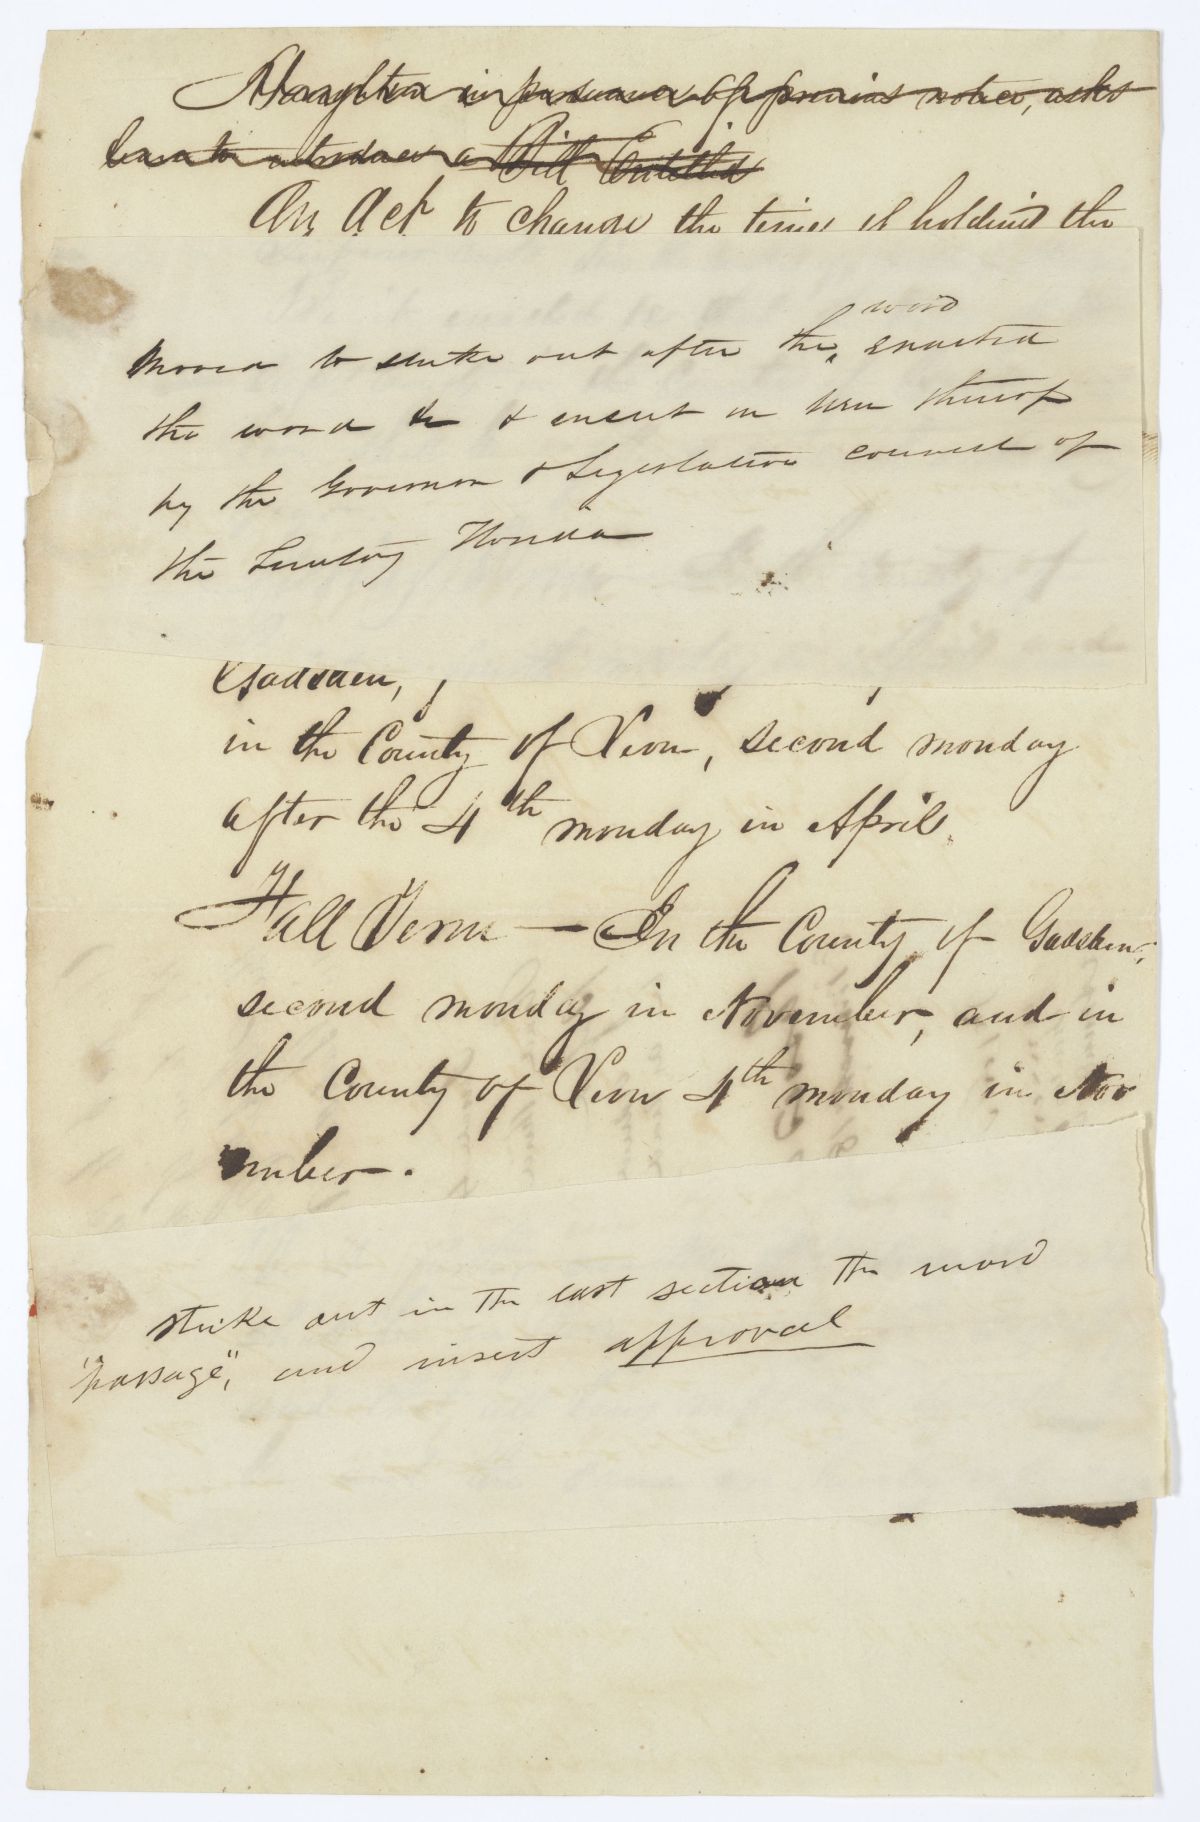 Haughton in pursuance of previous notice, asks
leave to introduce a Bill Entitled
An Act to change the times of holding the
word
Moved to strike out after the enacted
the word & insert in lieu thereof
by the Governor & Legislative council of
the Territory Florida
Gadsden,
in the County of Leon, second monday
after the 4th monday in April.
Fall Term — In the County of Gadsden,
second monday in November, and in
the County of Leon 4th monday in Nov
ember.
strike out in the last section the word
"passage", and insert approval